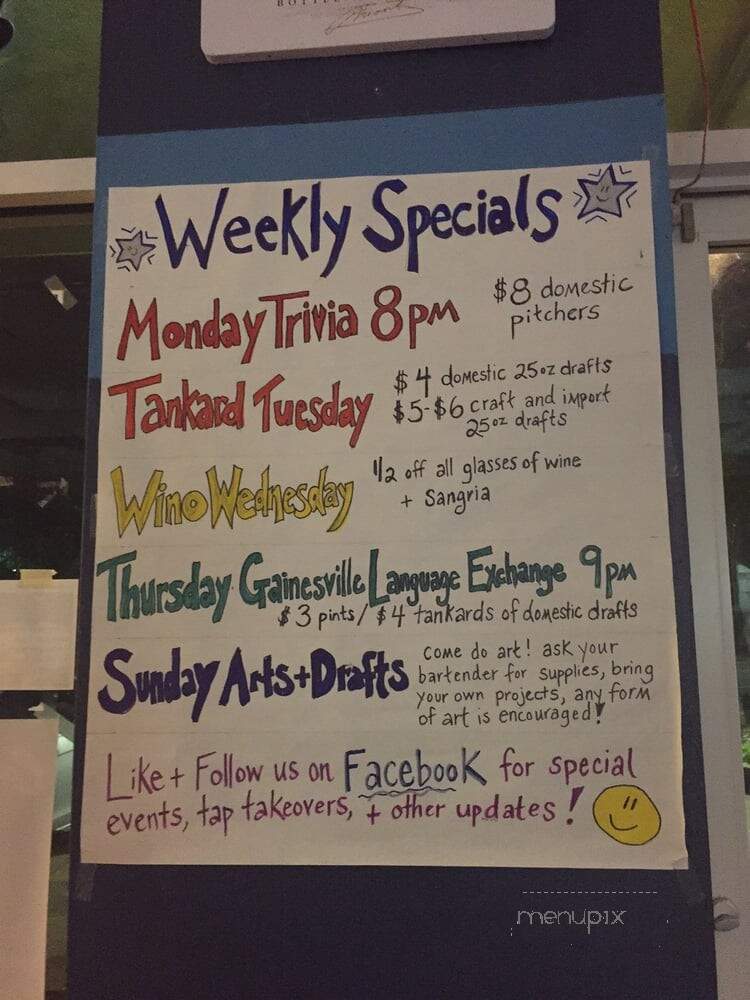 BOTTLE
Weekly Specials
Monday Trivia 8pm
$8 domestic
pitchers
Tankard Tuesday
$4 domestic 25oz drafts
$5-$6 craft and import
25oz drafts
Wino Wednesday
1/2 off all glasses of wine
+ Sangria
Thursday Gainesville Language Exchange 9pm
$3 pints/$4 tankards of domestic drafts
Sunday Arts+Drafts
come do art! ask your
bartender for supplies, bring
your own projects, any form
of art is encouraged!
Like + Follow us on Facebook for special
events, tap takeovers, + other updates!
menupix